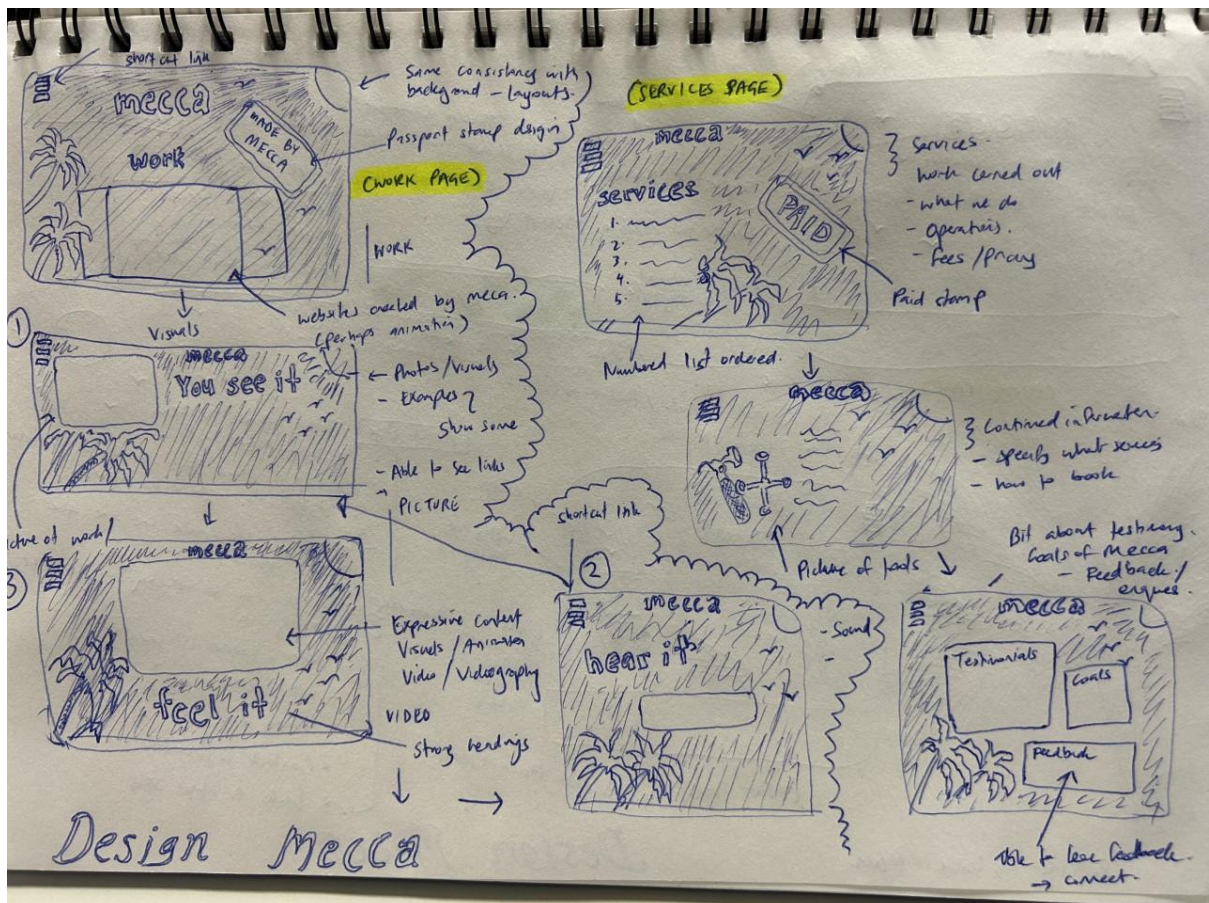 short cut link
mecca
MADE BY
MECCA
work
Same consistancy with
background - layouts.
Passport stamp design
(WORK PAGE)
WORK
websites created by mecca.
(perhaps animation)
Visuals
1
mecca
You see it
← Photos/visuals
- Examples
Show some
- Able to see links
PICTURE
of work/
3
mecca
feel it
Expressive content
Visuals / Animation
Video / Videography
VIDEO
Strong headings
Design Mecca
(SERVICES PAGE)
mecca
services
1.
2.
3.
4.
5.
PAID
Services.
work carried out
- what we do
- operations.
- Fees /
Paid stamp
Numbered list ordered.
mecca
Continued information.
- specify what services
- how to book
Picture of tools
shortcut link
2
mecca
hear it
- Sound
-
Bit about
Goals of Mecca
- Feedback /
mecca
Testimonials
Goals
Feedback
Able to feedback.
→ connect.